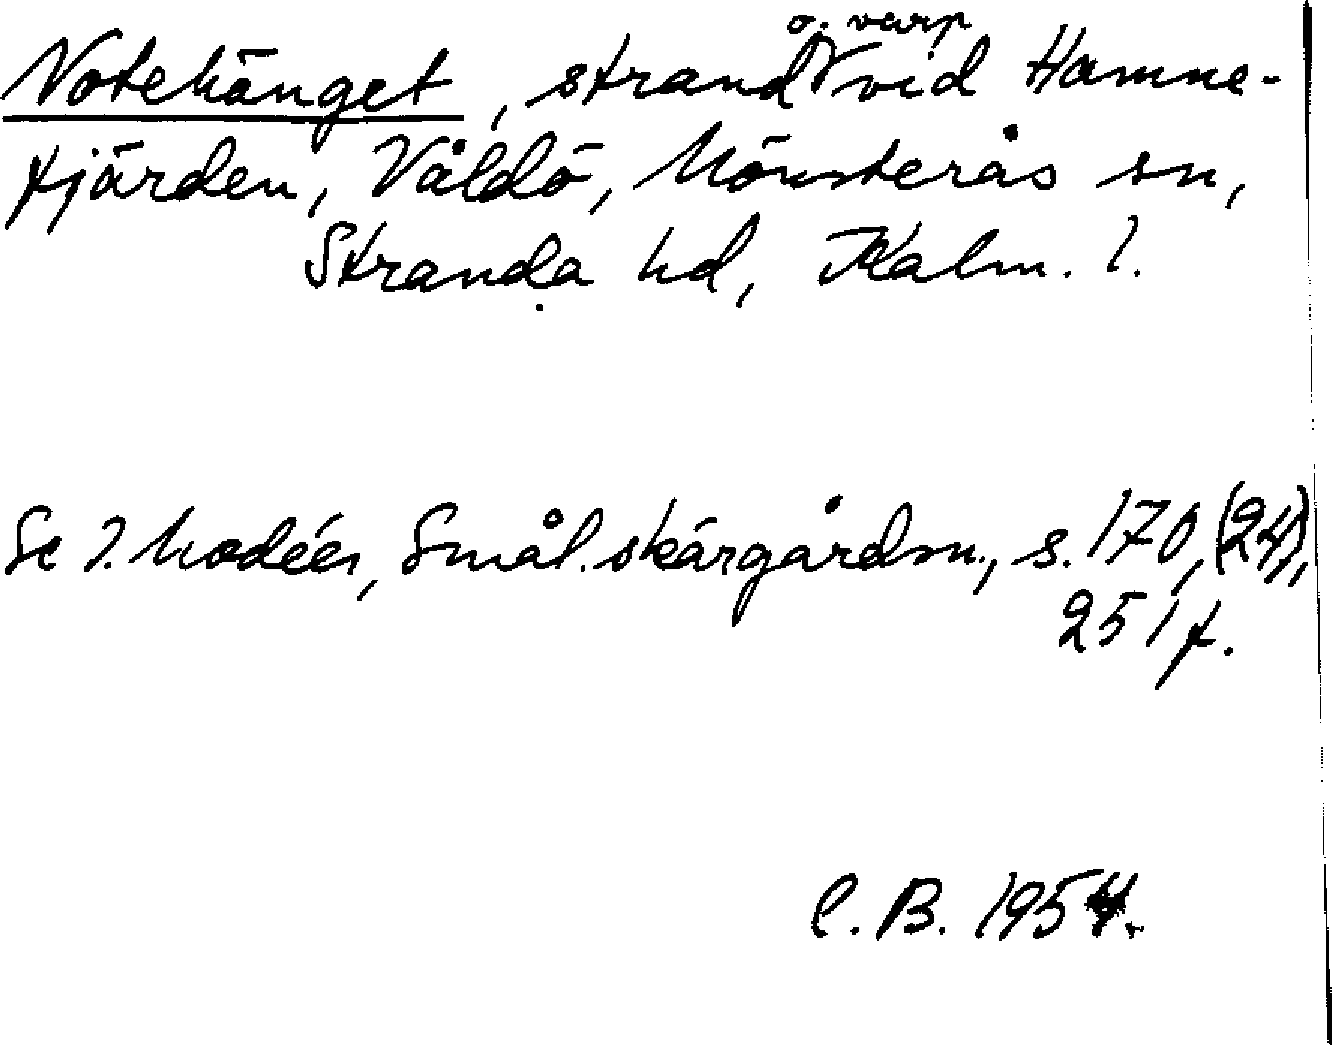 Notehänget, strand o. varp vid Hamne-
fjärden, Våldö, Mönsterås sn,
Stranda hd, Kalm. l.
Se I. Modéer, Smål. skärgårdsn., s. 170, (24),
251 f.
C. B. 1954.